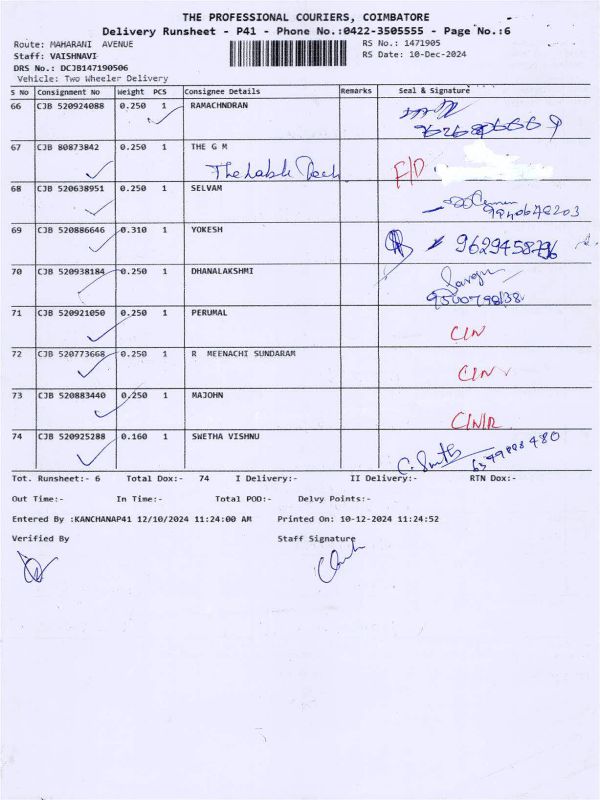 THE PROFESSIONAL COURIERS, COIMBATORE
Delivery Runsheet - P41 - Phone No.:0422-3505555 - Page No.:6
Route: MAHARANI AVENUE RS No.: 1471905
Staff: VAISHNAVI RS Date: 10-Dec-2024
DRS No.: DCJB147190506
Vehicle: Two Wheeler Delivery
S No Consignment No Weight PCS Consignee Details Remarks Seal & Signature
66 CJB 520924088 0.250 1 RAMACHNDRAN
67 CJB 80873842 0.250 1 THE G M
F/D
68 CJB 520638951 0.250 1 SELVAM
69 CJB 520886646 0.310 1 YOKESH
9629458796
70 CJB 520938184 0.250 1 DHANALAKSHMI
71 CJB 520921050 0.250 1 PERUMAL
C/N
72 CJB 520773668 0.250 1 R MEENACHI SUNDARAM
C/N
73 CJB 520883440 0.250 1 MAJOHN
C/N/R
74 CJB 520925288 0.160 1 SWETHA VISHNU
Tot. Runsheet:- 6 Total Dox:- 74 I Delivery:- II Delivery:- RTN Dox:-
Out Time:- In Time:- Total POD:- Delvy Points:-
Entered By :KANCHANAP41 12/10/2024 11:24:00 AM Printed On: 10-12-2024 11:24:52
Verified By Staff Signature